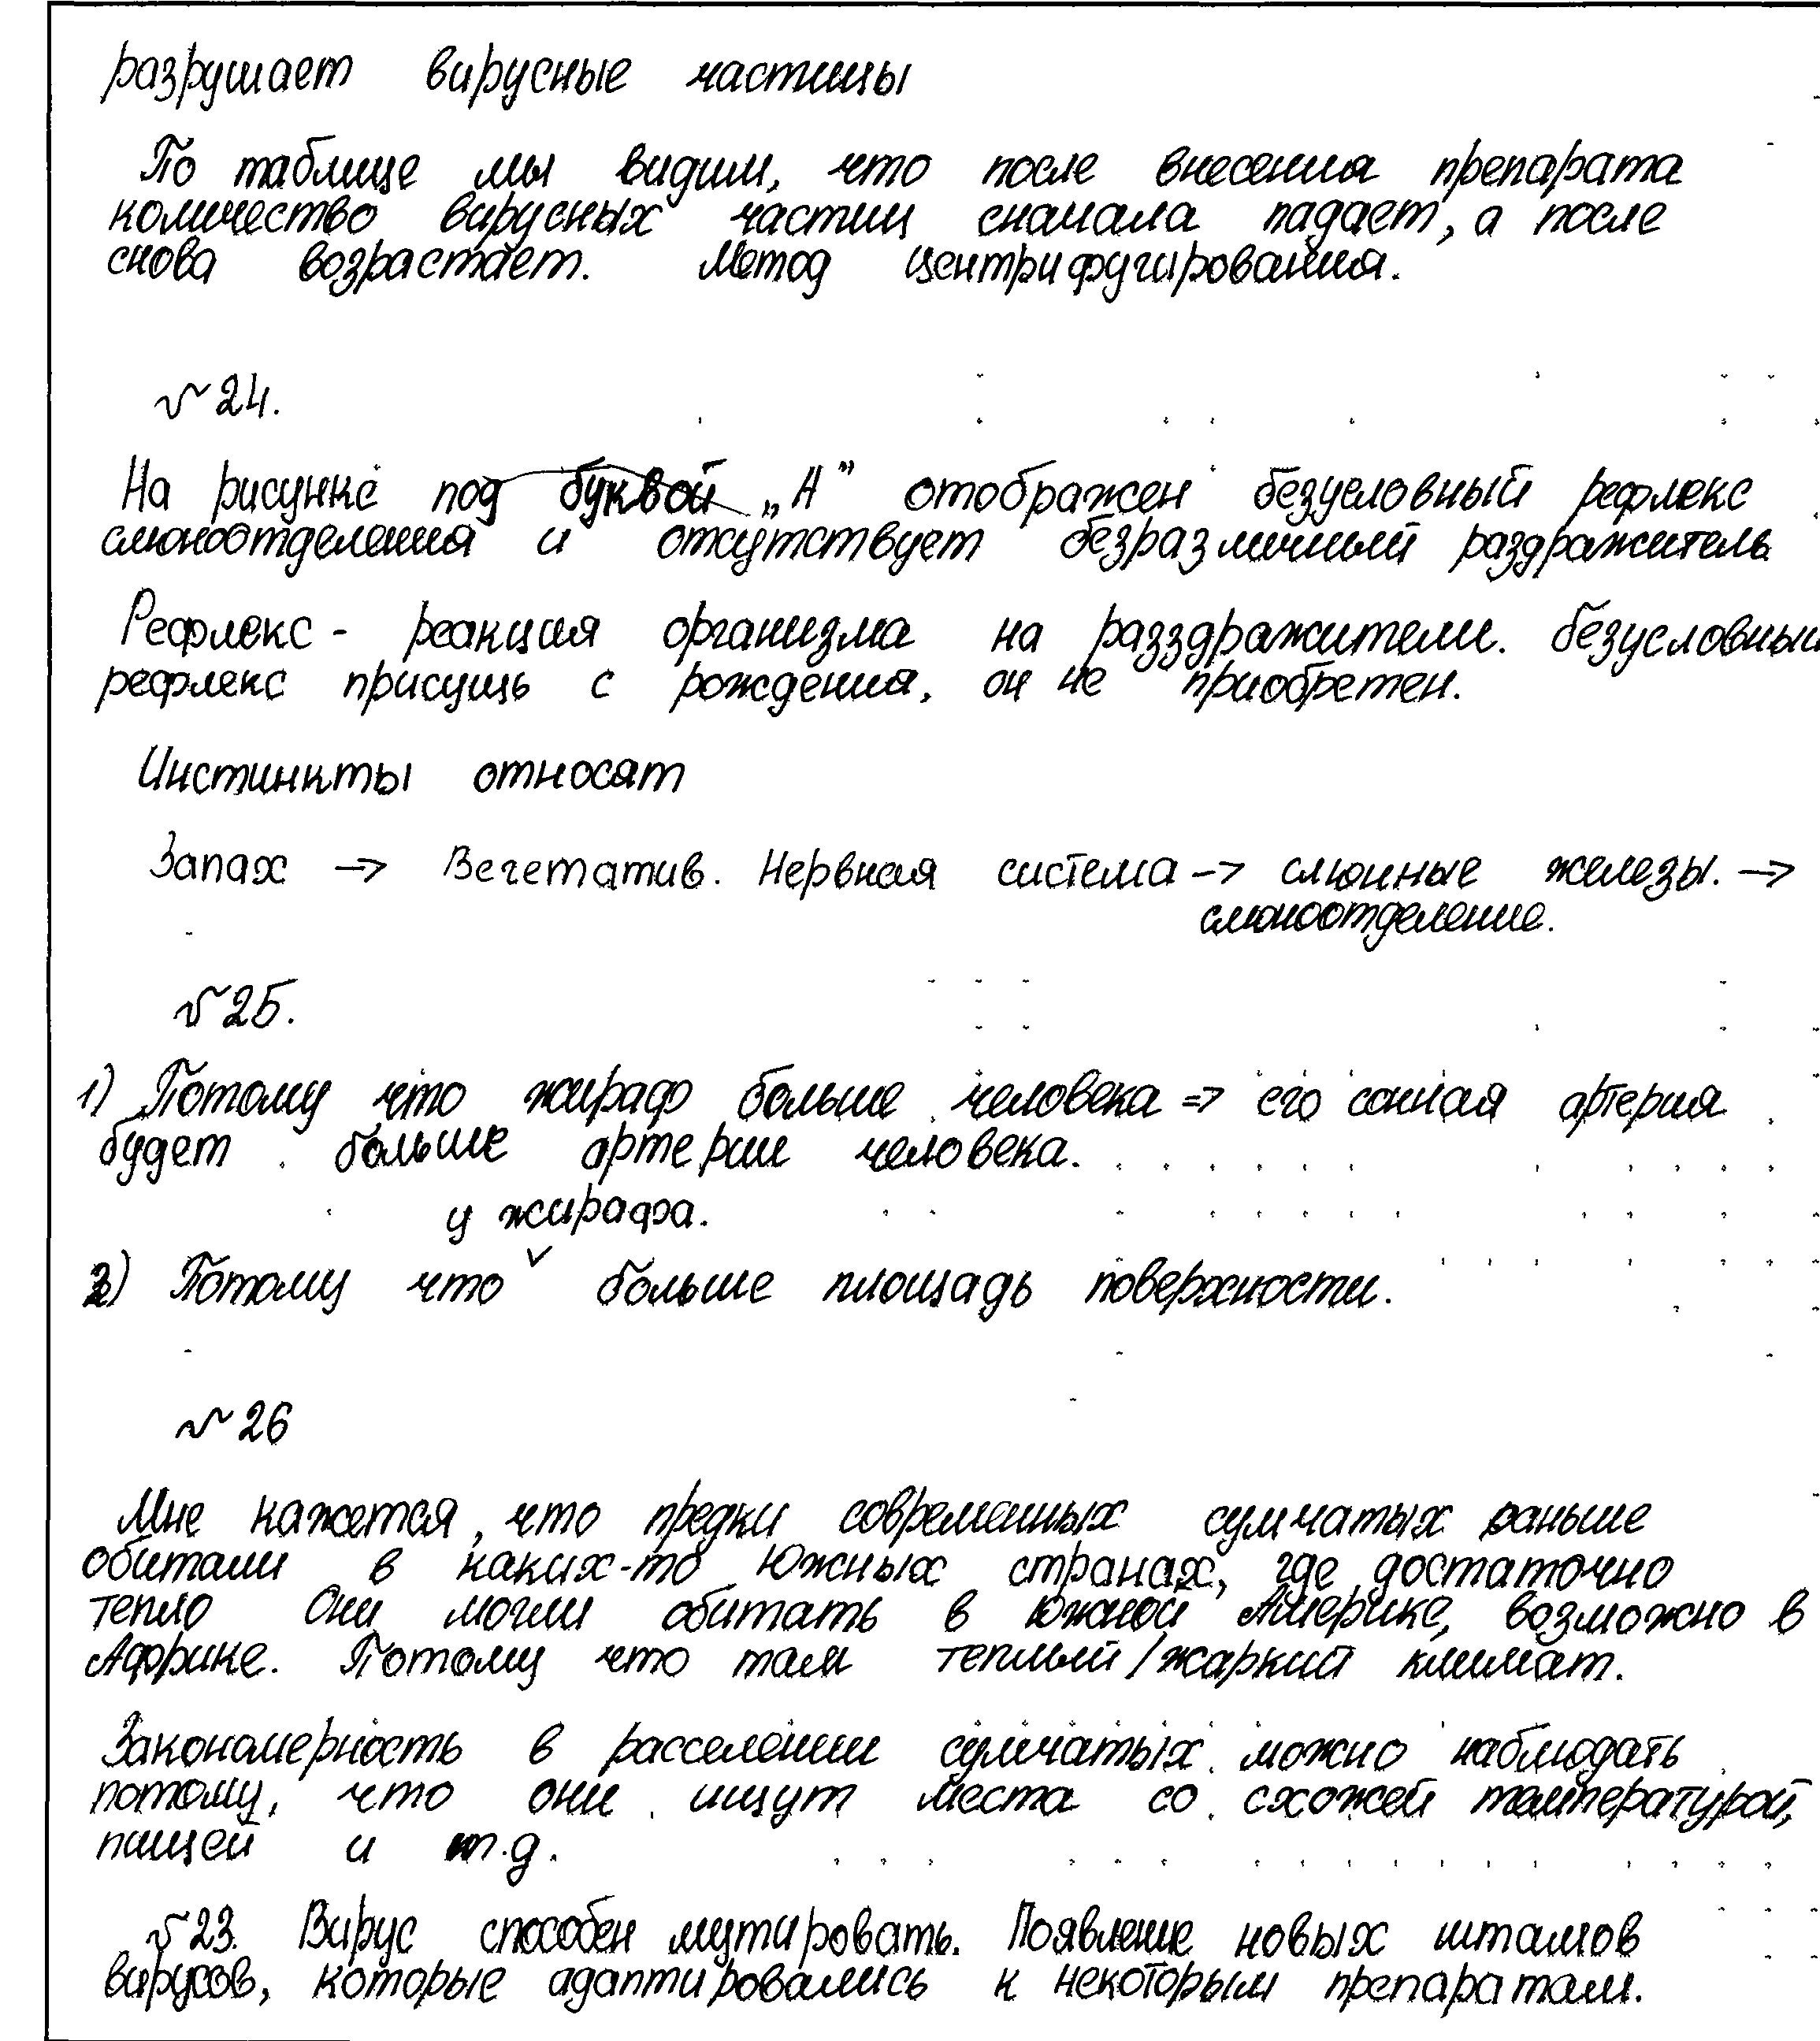 разрушает вирусные частицы
По таблице мы видим, что после внесения препарата
количество вирусных частиц сначала падает, а после
снова возрастает. Метод центрифугирования.
№ 24.
На рисунке под буквой „А” отображен безусловный рефлекс
слюноотделения и отсутствует безразличный раздражитель.
Рефлекс - реакция организма на разздражители. безусловный
рефлекс присущь с рождения, он не приобретен.
Инстинкты относят
Запах → Вегетатив. Нервная система → слюнные железы. →
слюноотделение.
№ 25.
1) Потому что жираф больше человека ⇒ его сонная артерия
будет больше артерии человека.
у жирафа.
2) Потому что ˅ больше площадь поверхности.
№ 26
Мне кажется, что предки современных сумчатых раньше
обитали в каких-то южных странах, где достаточно
тепло Они могли обитать в Южной Америке, возможно в
Африке. Потому что там теплый/жаркий климат.
Закономерность в расселении сумчатых можно наблюдать
потому, что они ищут места со схожей температурой,
пищей и т.д.
№ 23. Вирус способен мутировать. Появление новых штамов
вирусов, которые адаптировались к некоторым препаратам.